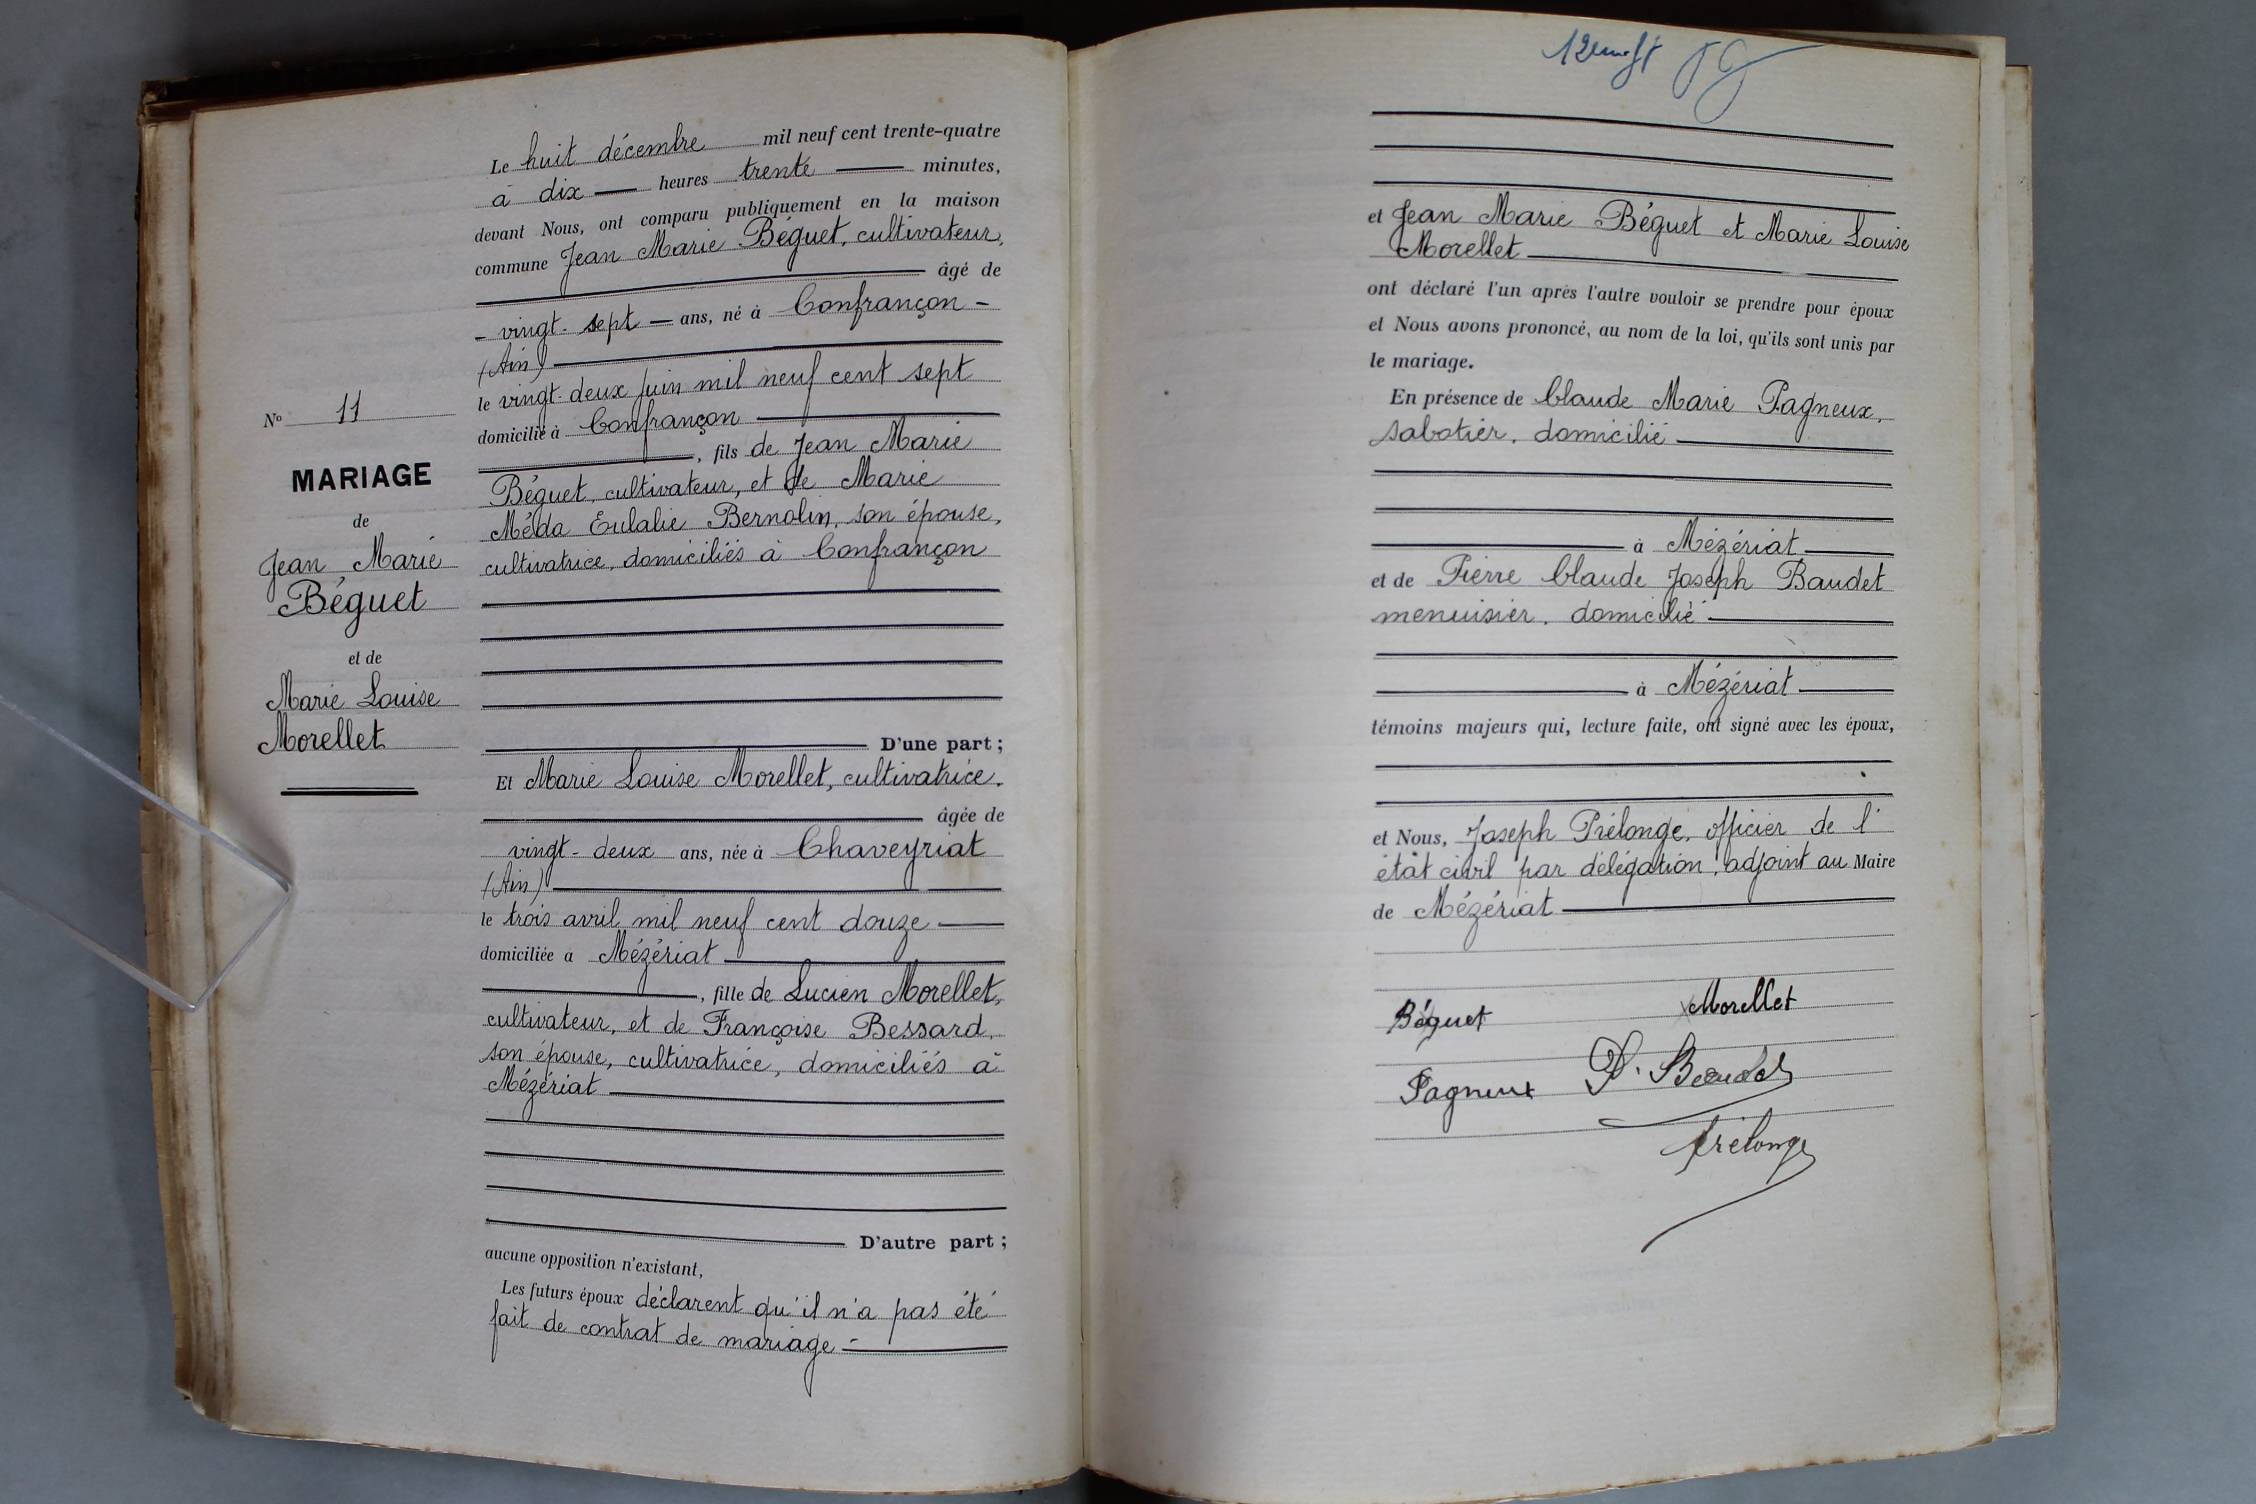 Le huit décembre mil neuf cent trente-quatre
à dix heures trente minutes,
devant Nous, ont comparu publiquement en la maison
commune Jean Marie Béguet, cultivateur,
âgé de
vingt-sept ans, né à Confrançon
(Ain)
le vingt-deux juin mil neuf cent sept
domicilié à Confrançon
, fils de Jean Marie
Béguet, cultivateur, et de Marie
Méda Eulalie Bernolin, son épouse,
cultivatrice, domiciliés à Confrançon
D'une part ;
Et Marie Louise Morellet, cultivatrice,
âgée de
vingt-deux ans, née à Chaveyriat
(Ain)
le trois avril mil neuf cent douze
domiciliée à Mézériat
, fille de Lucien Morellet,
cultivateur, et de Françoise Bessard,
son épouse, cultivatrice, domiciliés à
Mézériat
D'autre part ;
aucune opposition n'existant,
Les futurs époux déclarent qu'il n'a pas été
fait de contrat de mariage
No 11
MARIAGE
de
Jean Marie
Béguet
et de
Marie Louise
Morellet
et Jean Marie Béguet et Marie Louise
Morellet
ont déclaré l'un après l'autre vouloir se prendre pour époux
et Nous avons prononcé, au nom de la loi, qu'ils sont unis par
le mariage.
En présence de Claude Marie Pagneux,
sabotier, domicilié
à Mézériat
et de Pierre Claude Joseph Baudet
menuisier, domicilié
à Mézériat
témoins majeurs qui, lecture faite, ont signé avec les époux,
et Nous, Joseph Prélonge, officier de l'
état civil par délégation, adjoint au Maire
de Mézériat
Béguet Morellet
Pagneux P. Baudet
Prélonge